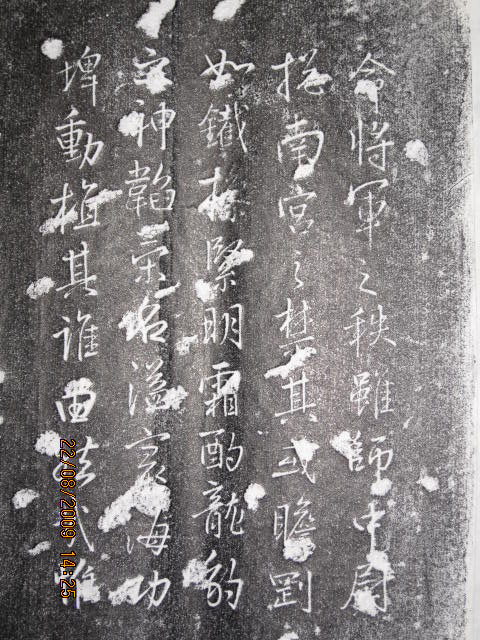 令將軍之秩雖師中尉
揔南宮之禁其或瞻剛
如鐵操緊明霜酌龍豹
之神韜名溢寰海功
埤動植其誰由惟
22/08/2009 14:25